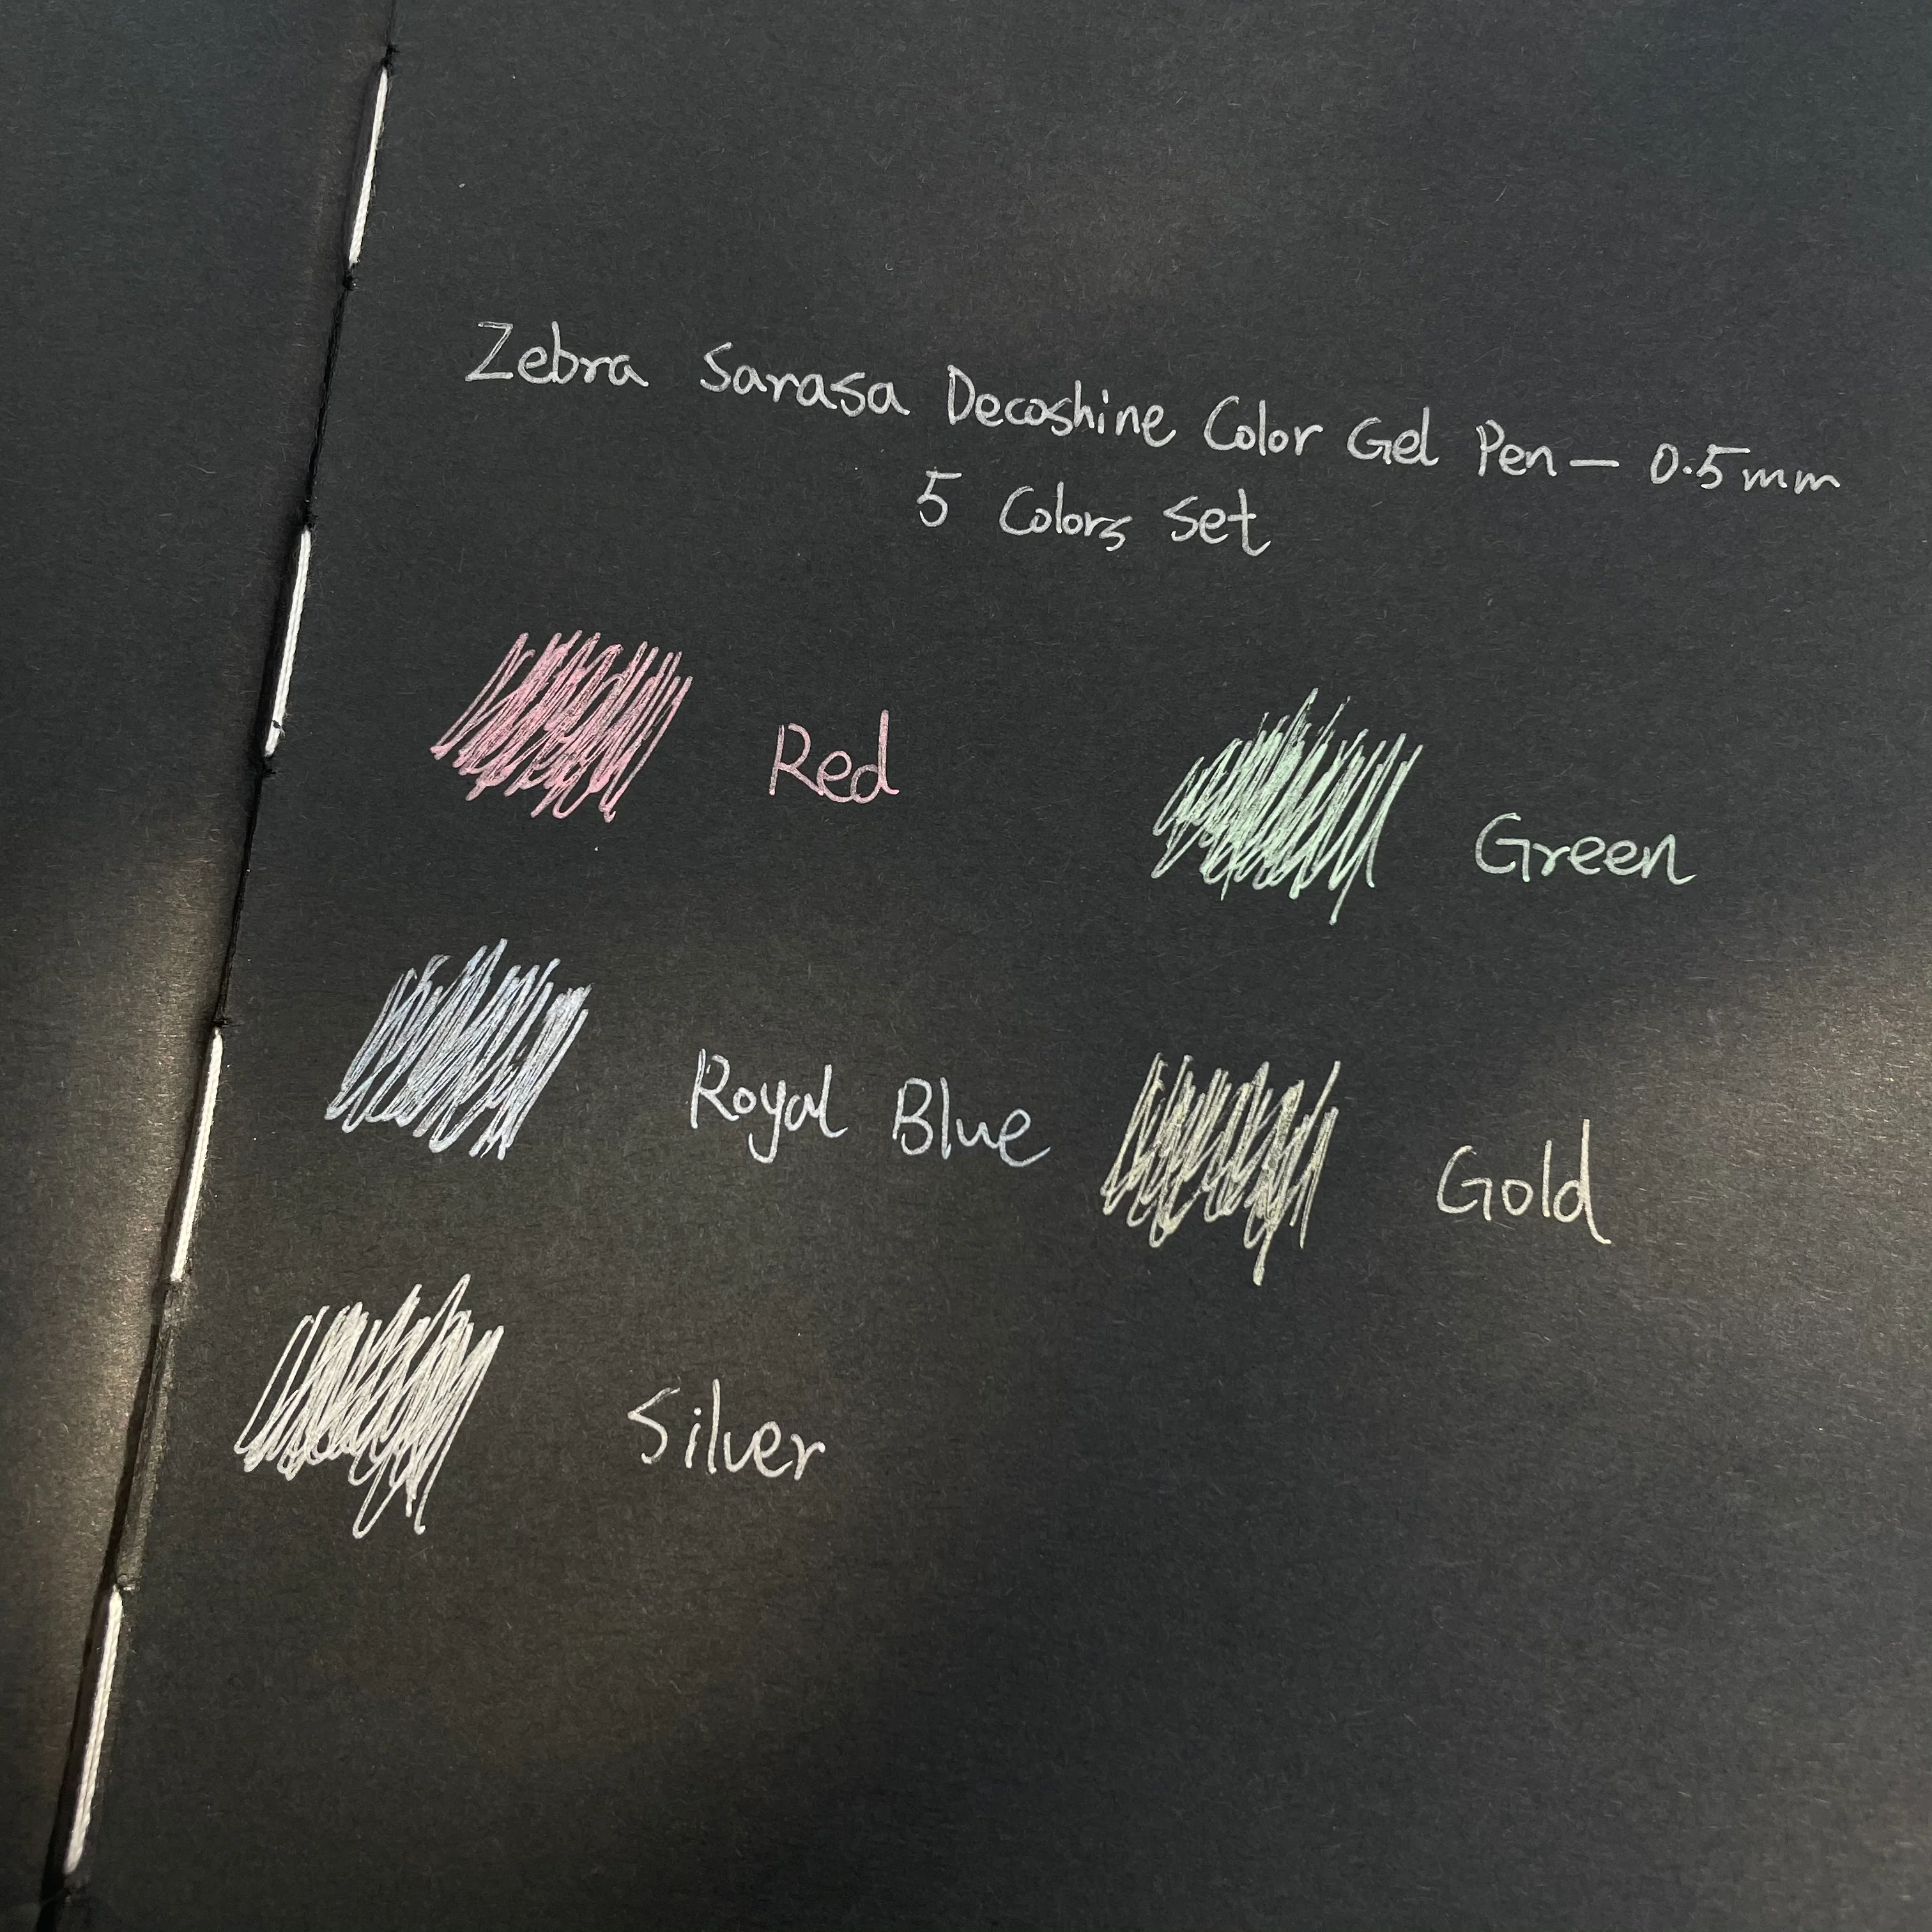 Zebra Sarasa Decoshine Color Gel Pen — 0.5mm
5 Colors Set
Red
Green
Royal Blue
Gold
Silver